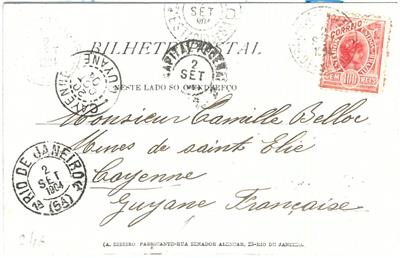 SET
BILHETE POSTAL
CORREIO
CEM 100 REIS
CAPITAL FEDERAL
2
SET
NESTE LADO SO O ENDEREÇO
CAYENNE
GUYANE
Monsieur Camille Belloc
Mines de saint Elie
Cayenne
Guyane Française
RIO DE JANEIRO
2
SET
1904
1ª (5A)
(A. RIBEIRO FABRICANTE-RUA SENADOR ALENCAR, 25-RIO DE JANEIRO.